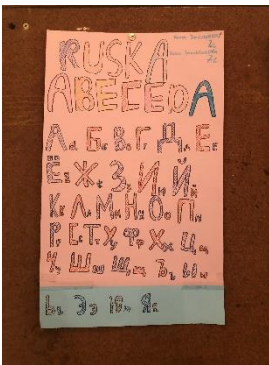 RUSKA
ABECEDA
Аа Бб Вв Гг Дд Ее
Ёё Жж Зз Ии Йй
Кк Лл Мм Нн Оо Пп
Рр Сс Тт Уу Фф Хх Цц
Чч Шш Щщ Ъъ Ыы
Ьь Ээ Юю Яя